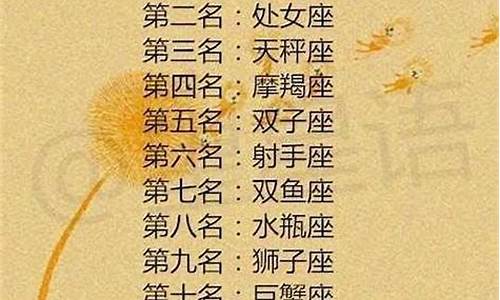 第二名：处女座
第三名：天秤座
第四名：摩羯座
第五名：双子座
第六名：射手座
第七名：双鱼座
第八名：水瓶座
第九名：狮子座
第十名：巨蟹座